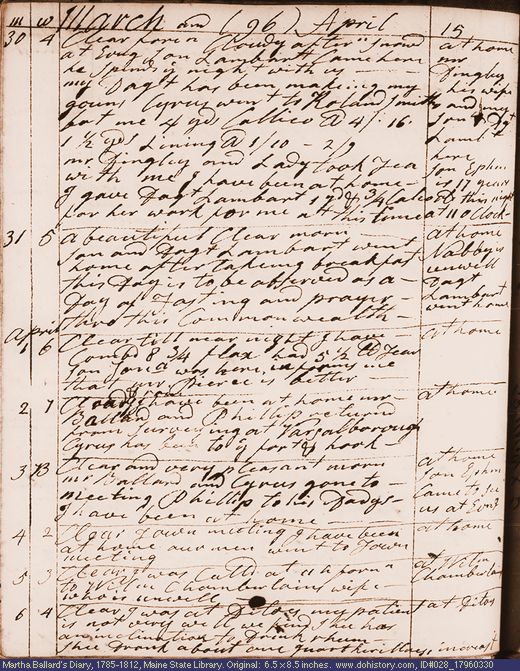 m w March and (96) April 15
30 4 Clear forin Cloudy after. Snowd at home
at Evng. Son Lambart Came here mr
he Spends ye night with us Dingley
my Dagt has been making my & his wife
gown Cyrus went to Roland Smiths
bot me 4 yds Callico @ 4/ : 16 Son & Dagt
1 1/2 yds Lining @ 1/10 - 2/9 Lambt
mr Dingley and Lady took Tea here
with me I have been at home Son Ephm
I gave Dagt Lambart 1 yd & 3/4 Calico is 17 years
for her work for me at this time old this night
at 11 O Clock
31 5 a beautiful Clear morn at home
Son and Dagt Lambart went Nabby is
home after taking breakfast unwell
this Day is to be observed as a Dagt
Day of Fasting and prayer Lambart
thro this Common wealth went home
April
1 6 Clear till near night I have at home
Comb'd 8 3/4 lb flax had 5 1/2 lb Tear
Son Jona was here, informs me
that mr Pierce is better
2 7 Cloudy I have been at home mr at home
Ballard and Phillip returnd
from Surveying at Vassalborough
Cyrus has been to ye fort & hook
3 B Clear and very pleasant morn at home
mr Ballard and Cyrus gone to Son Ephm
meeting Phillip to his Dadys Came to see
I have been at home us at Evng
4 2 Clear Town meeting I have been at home
at home our men went to Town
meeting
5 3 Clear I was Calld at 2h forn at Mr
to see Chamberlains wife Chamberlains
who is unwell
6 4 Clear I was at Ditos my patient at Ditos
is not very well we find she has
an inclination to Drink rhum
She Drank about one quart
Martha Ballard's Diary, 1785-1812, Maine State Library. Original: 6.5 x 8.5 inches. www.dohistory.com, ID#028_17960330